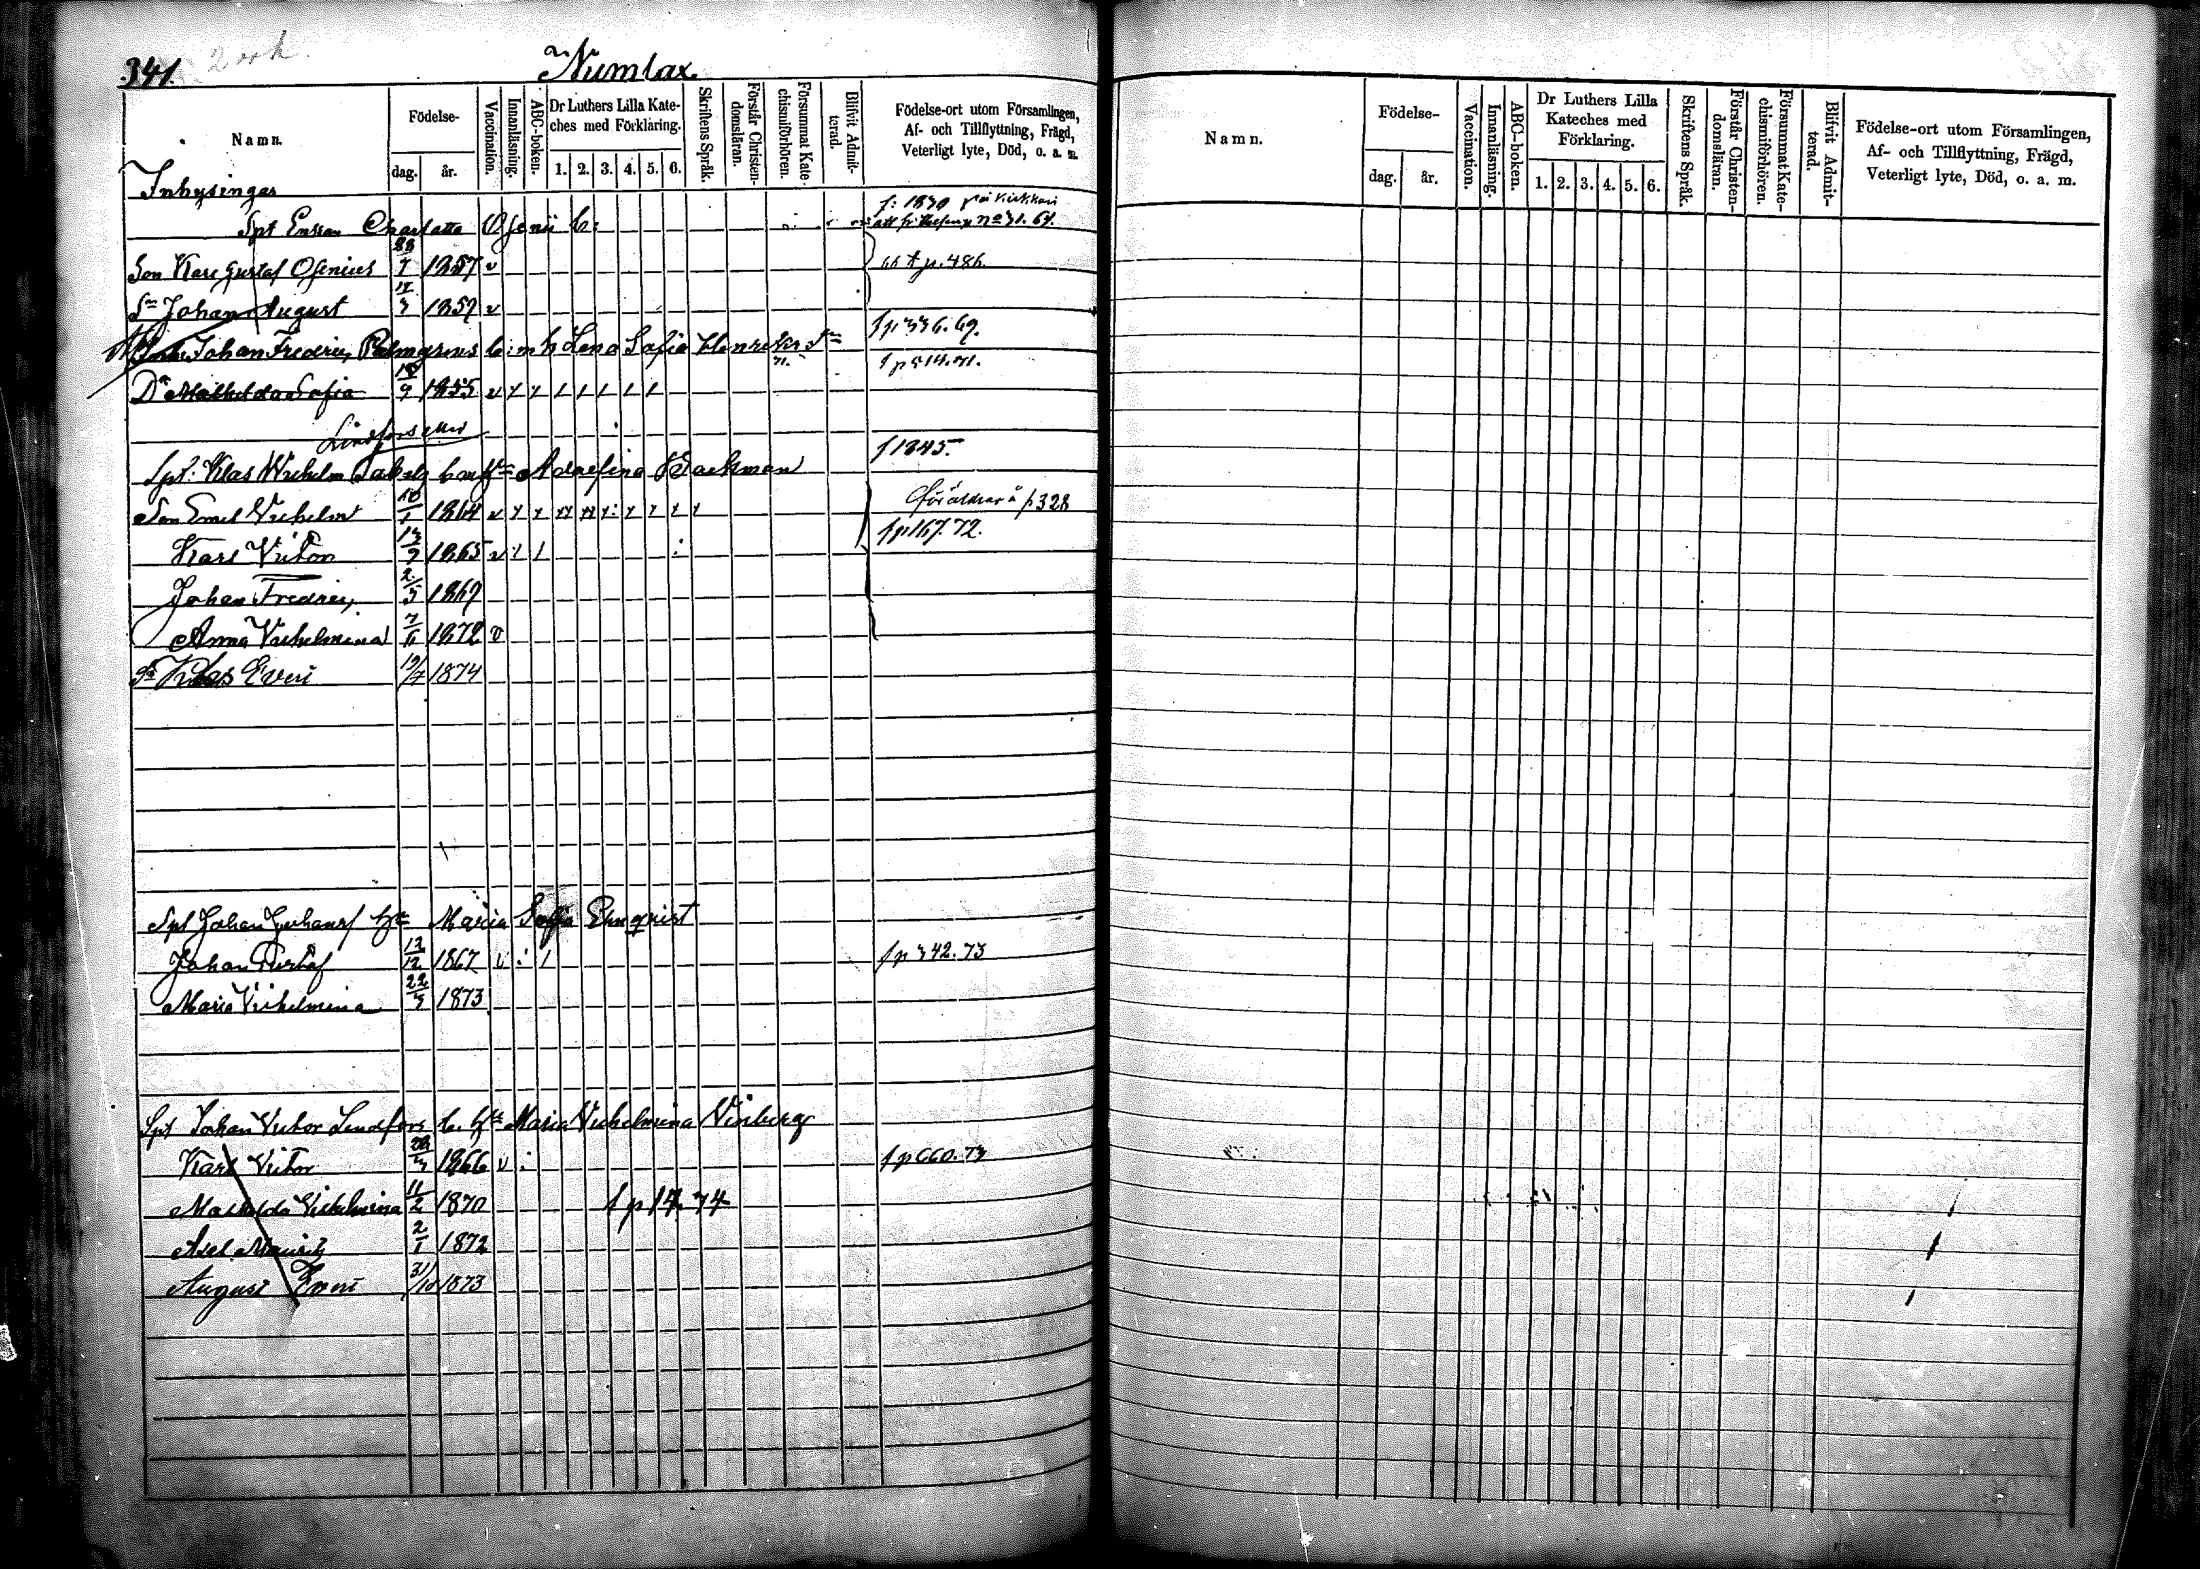 341. 2 ark.
Numlax
Namn.
Födelse-
dag.
år.
Vaccination.
Innanläsning.
ABC-boken.
Dr Luthers Lilla Kate-
ches med Förklaring.
1. 2. 3. 4. 5. 6.
Skriftens Språk.
Förstår Christen-
domsläran.
Försummat Kate-
chismiförhören.
Blifvit Admit-
terad.
Födelse-ort utom Församlingen,
Af- och Tillflyttning, Frägd,
Veterligt lyte, Död, o. a. m.
Inhysingar
f. 1830
Spt Enkan Charlotta Ofenii b:
Son Karl Gustaf Ofenius 28/7 1857 v p. 486.
Sn Johan August 1859 v
Johan Fredric Palmgrens b: m h Lena Sofia Henriksdr fp 336. 69.
Dr Mathilda Sofia 18/9 1855 v fp 514. 71.
Lindfors
Spt: Klas Wilhelm b m hu Adolfina Backman f 1845.
Son Emil Vilhelm 10/1 1864 v föräldrar å p 328
Karl Victor 13/9 1865 v fp 167. 72.
Johan Fredric 2/5 1869
Anna Vilhelmina 7/6 1872 v
Sn Klas Evert 19/7 1874
Spt Johan Johansf hu Maria Sofia Elmqvist
Johan Gustaf 12/12 1867 v fp 342. 73
Maria Vilhelmina 22/5 1873
Spt Johan Victor Lindfors b. hu Maria Vilhelmina Vinberg
Karl Victor 28/5 1866 v fp 660. 73
Mathilda Vilhelmina 11/2 1870 fp 14. 74
Axel Mauritz 2/1 1872
August Evert 31/10 1873
Namn.
Födelse-
dag.
år.
Vaccination.
Innanläsning.
ABC-boken.
Dr Luthers Lilla
Kateches med
Förklaring.
1. 2. 3. 4. 5. 6.
Skriftens Språk.
Förstår Christen-
domsläran.
Försummat Kate-
chismiförhören.
Blifvit Admit-
terad.
Födelse-ort utom Församlingen,
Af- och Tillflyttning, Frägd,
Veterligt lyte, Död, o. a. m.